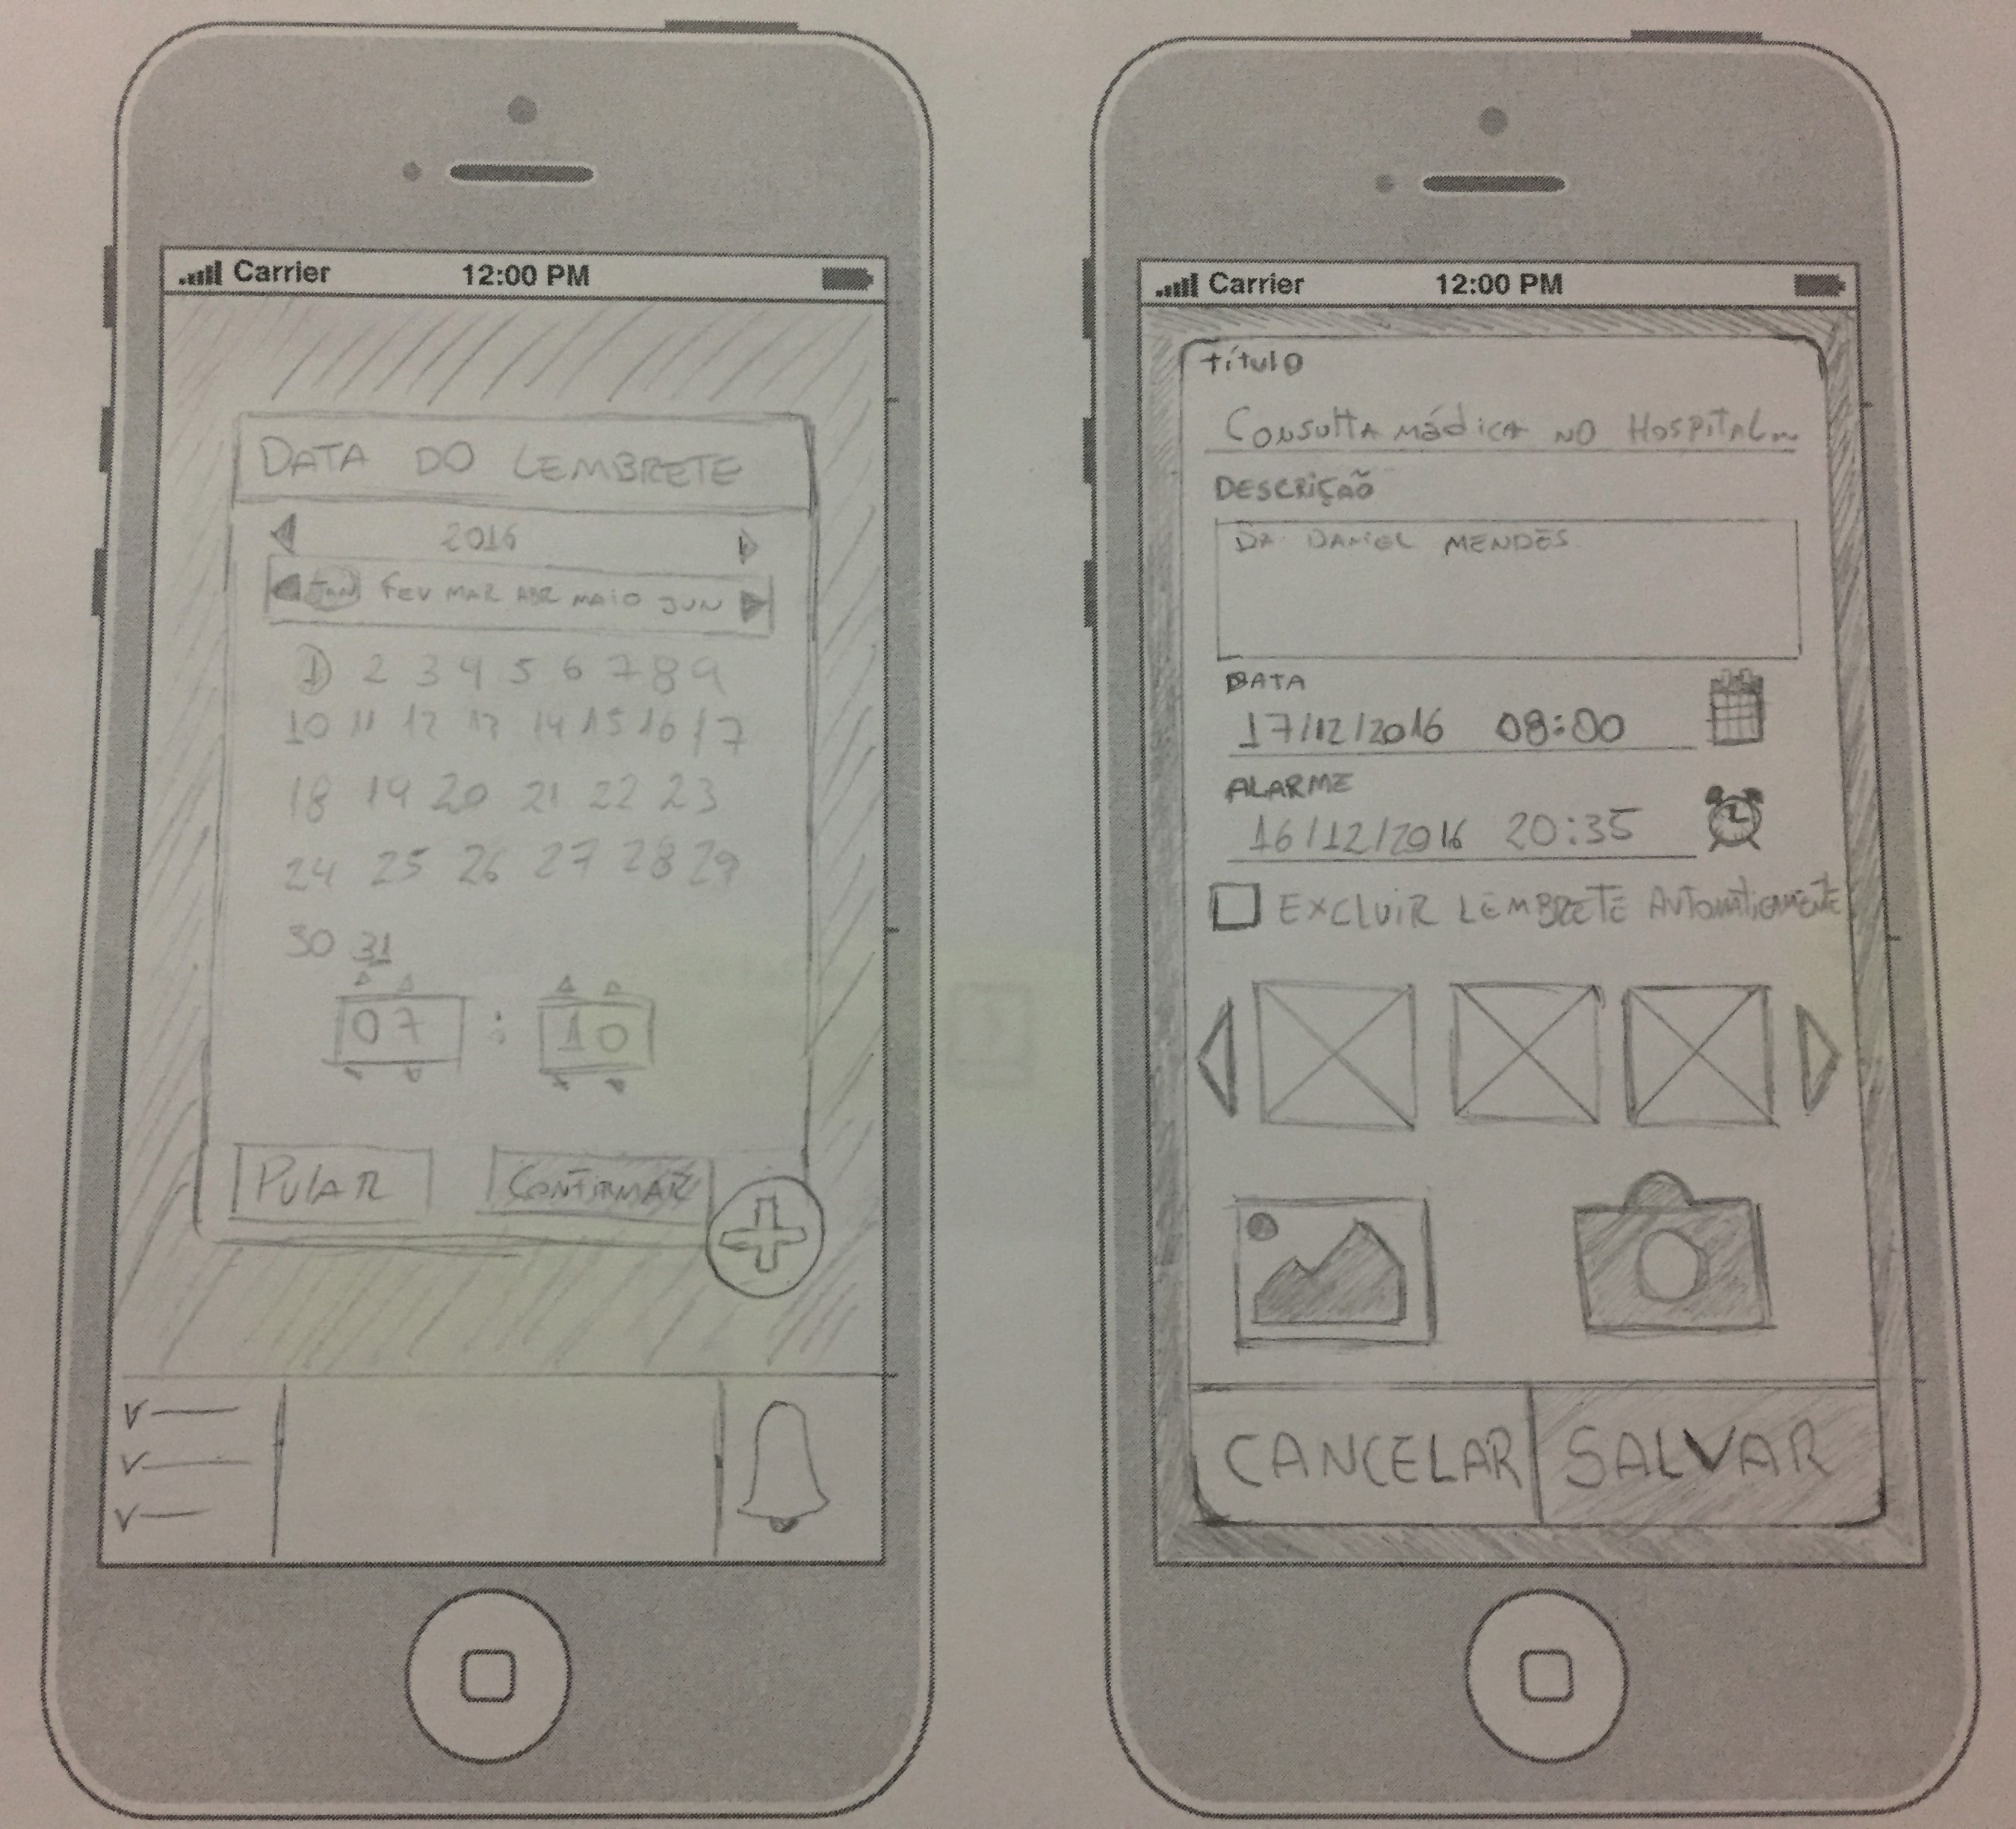 Carrier 12:00 PM
DATA DO LEMBRETE
2016
JAN FEV MAR ABR MAIO JUN
1 2 3 4 5 6 7 8 9
10 11 12 13 14 15 16 17
18 19 20 21 22 23
24 25 26 27 28 29
30 31
07 : 10
PULAR CONFIRMAR
Carrier 12:00 PM
Título
Consulta médica no Hospital...
DESCRIÇÃO
DR. DANIEL MENDES
DATA
17/12/2016 08:00
ALARME
16/12/2016 20:35
EXCLUIR LEMBRETE AUTOMATICAMENTE
CANCELAR SALVAR